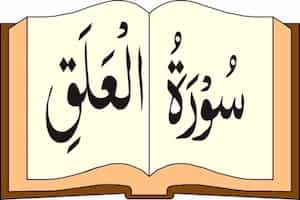 سُوْرَةُ الْعَلَقِ